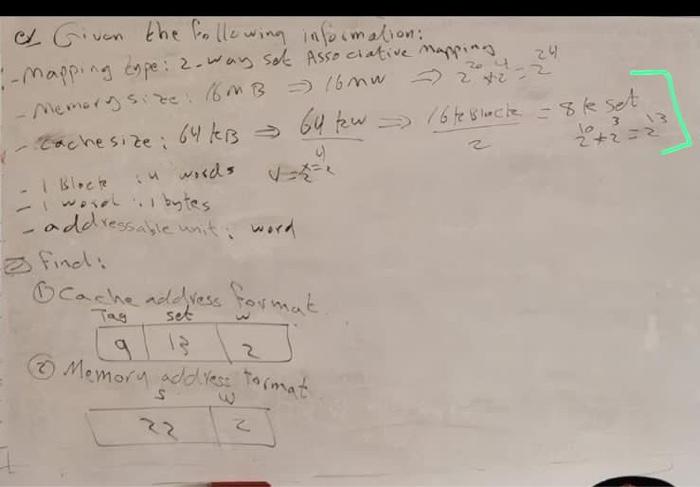 Given the following information:
- Mapping type: 2-way set Associative Mapping
- Memory size: 16MB => 16MW => 2^20 * 2^4 = 2^24
- Cache size: 64 kB => 64 kW / 4 => 16k Block / 2 = 8k set
2^10 * 2^3 = 2^13
- 1 Block : 4 words
- 1 word : 1 bytes
- addressable unit: word
Find:
① Cache address format
Tag set w
9 13 2
② Memory address format
s w
22 2